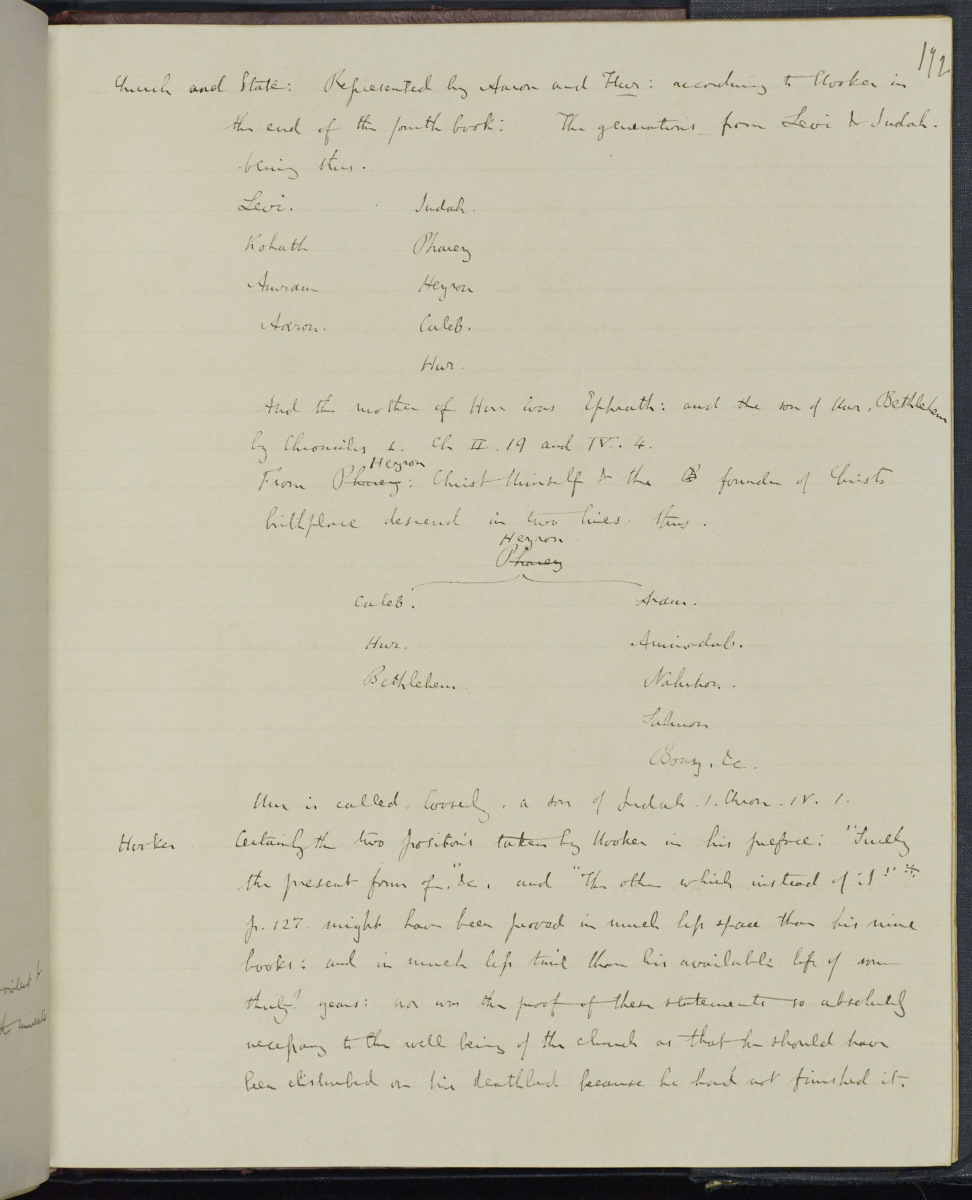 192
Church and State: Represented by Aaron and Hur: according to Hooker in
the end of the fourth book: The generations from Levi & Judah.
being thus.
Levi. Judah.
Kohath Pharez
Amram Hezron
Aaron. Caleb.
Hur.
And the mother of Hur was Ephrath: and the son of Hur, Bethlehem
by Chronicles 1. Ch II. 19 and IV. 4.
Hezron
From Pharez: Christ Himself & the founder of Christs
birthplace descend in two lines. thus.
Hezron
Pharez
Caleb. Aram.
Hur. Aminadab.
Bethlehem. Nahshon.
Salmon
Boaz, &c.
Hur is called, loosely, a son of Judah. 1. Chron. IV. 1.
Hooker Certainly the two positions taken by Hooker in his preface: "Surely
the present form of," &c. and "The other which instead of it"
p. 127. might have been proved in much less space than his nine
books: and in much less time than his available life of some
thirty years: nor was the proof of these statements so absolutely
necessary to the well being of the church as that he should have
been disturbed on his deathbed because he had not finished it.